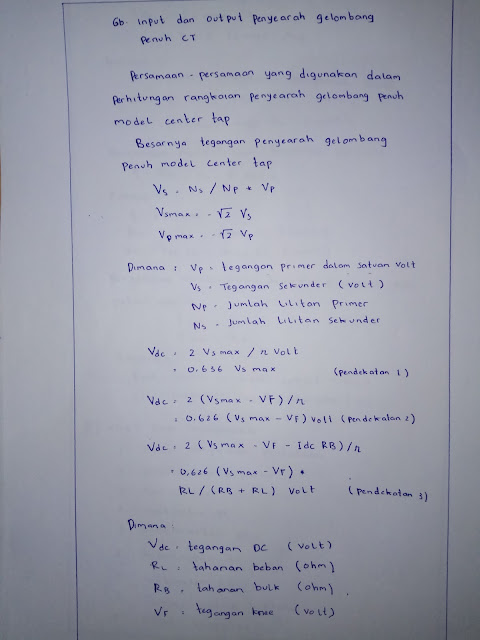 Gb. Input dan output penyearah gelombang
penuh CT
Persamaan - persamaan yang digunakan dalam
perhitungan rangkaian penyearah gelombang penuh
model center tap
Besarnya tegangan penyearah gelombang
penuh model center tap
Vs = Ns / Np * Vp
Vsmax = √2 Vs
Vp max = √2 Vp
Dimana : Vp = tegangan primer dalam satuan volt
Vs = Tegangan sekunder (volt)
Np = Jumlah lilitan primer
Ns = Jumlah lilitan sekunder
Vdc = 2 Vs max / π Volt
= 0.636 Vs max (pendekatan 1)
Vdc = 2 (Vs max - VF) / π
= 0.626 (Vs max - VF) Volt (pendekatan 2)
Vdc = 2 (Vs max - VF - Idc RB) / π
= 0.626 (Vs max - VF) *
RL / (RB + RL) Volt (pendekatan 3)
Dimana :
Vdc = tegangan DC (volt)
RL = tahanan beban (ohm)
RB = tahanan bulk (ohm)
VF = tegangan knee (volt)